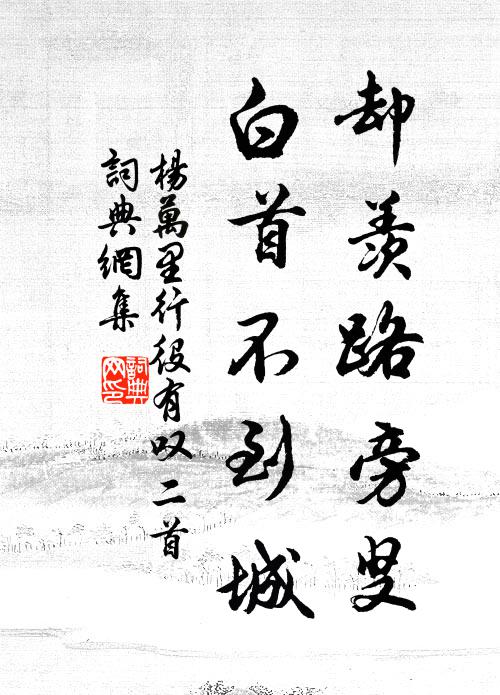 却羨路旁叟
白首不到城
楊萬里行役有叹二首
詞典網集
詞典網印